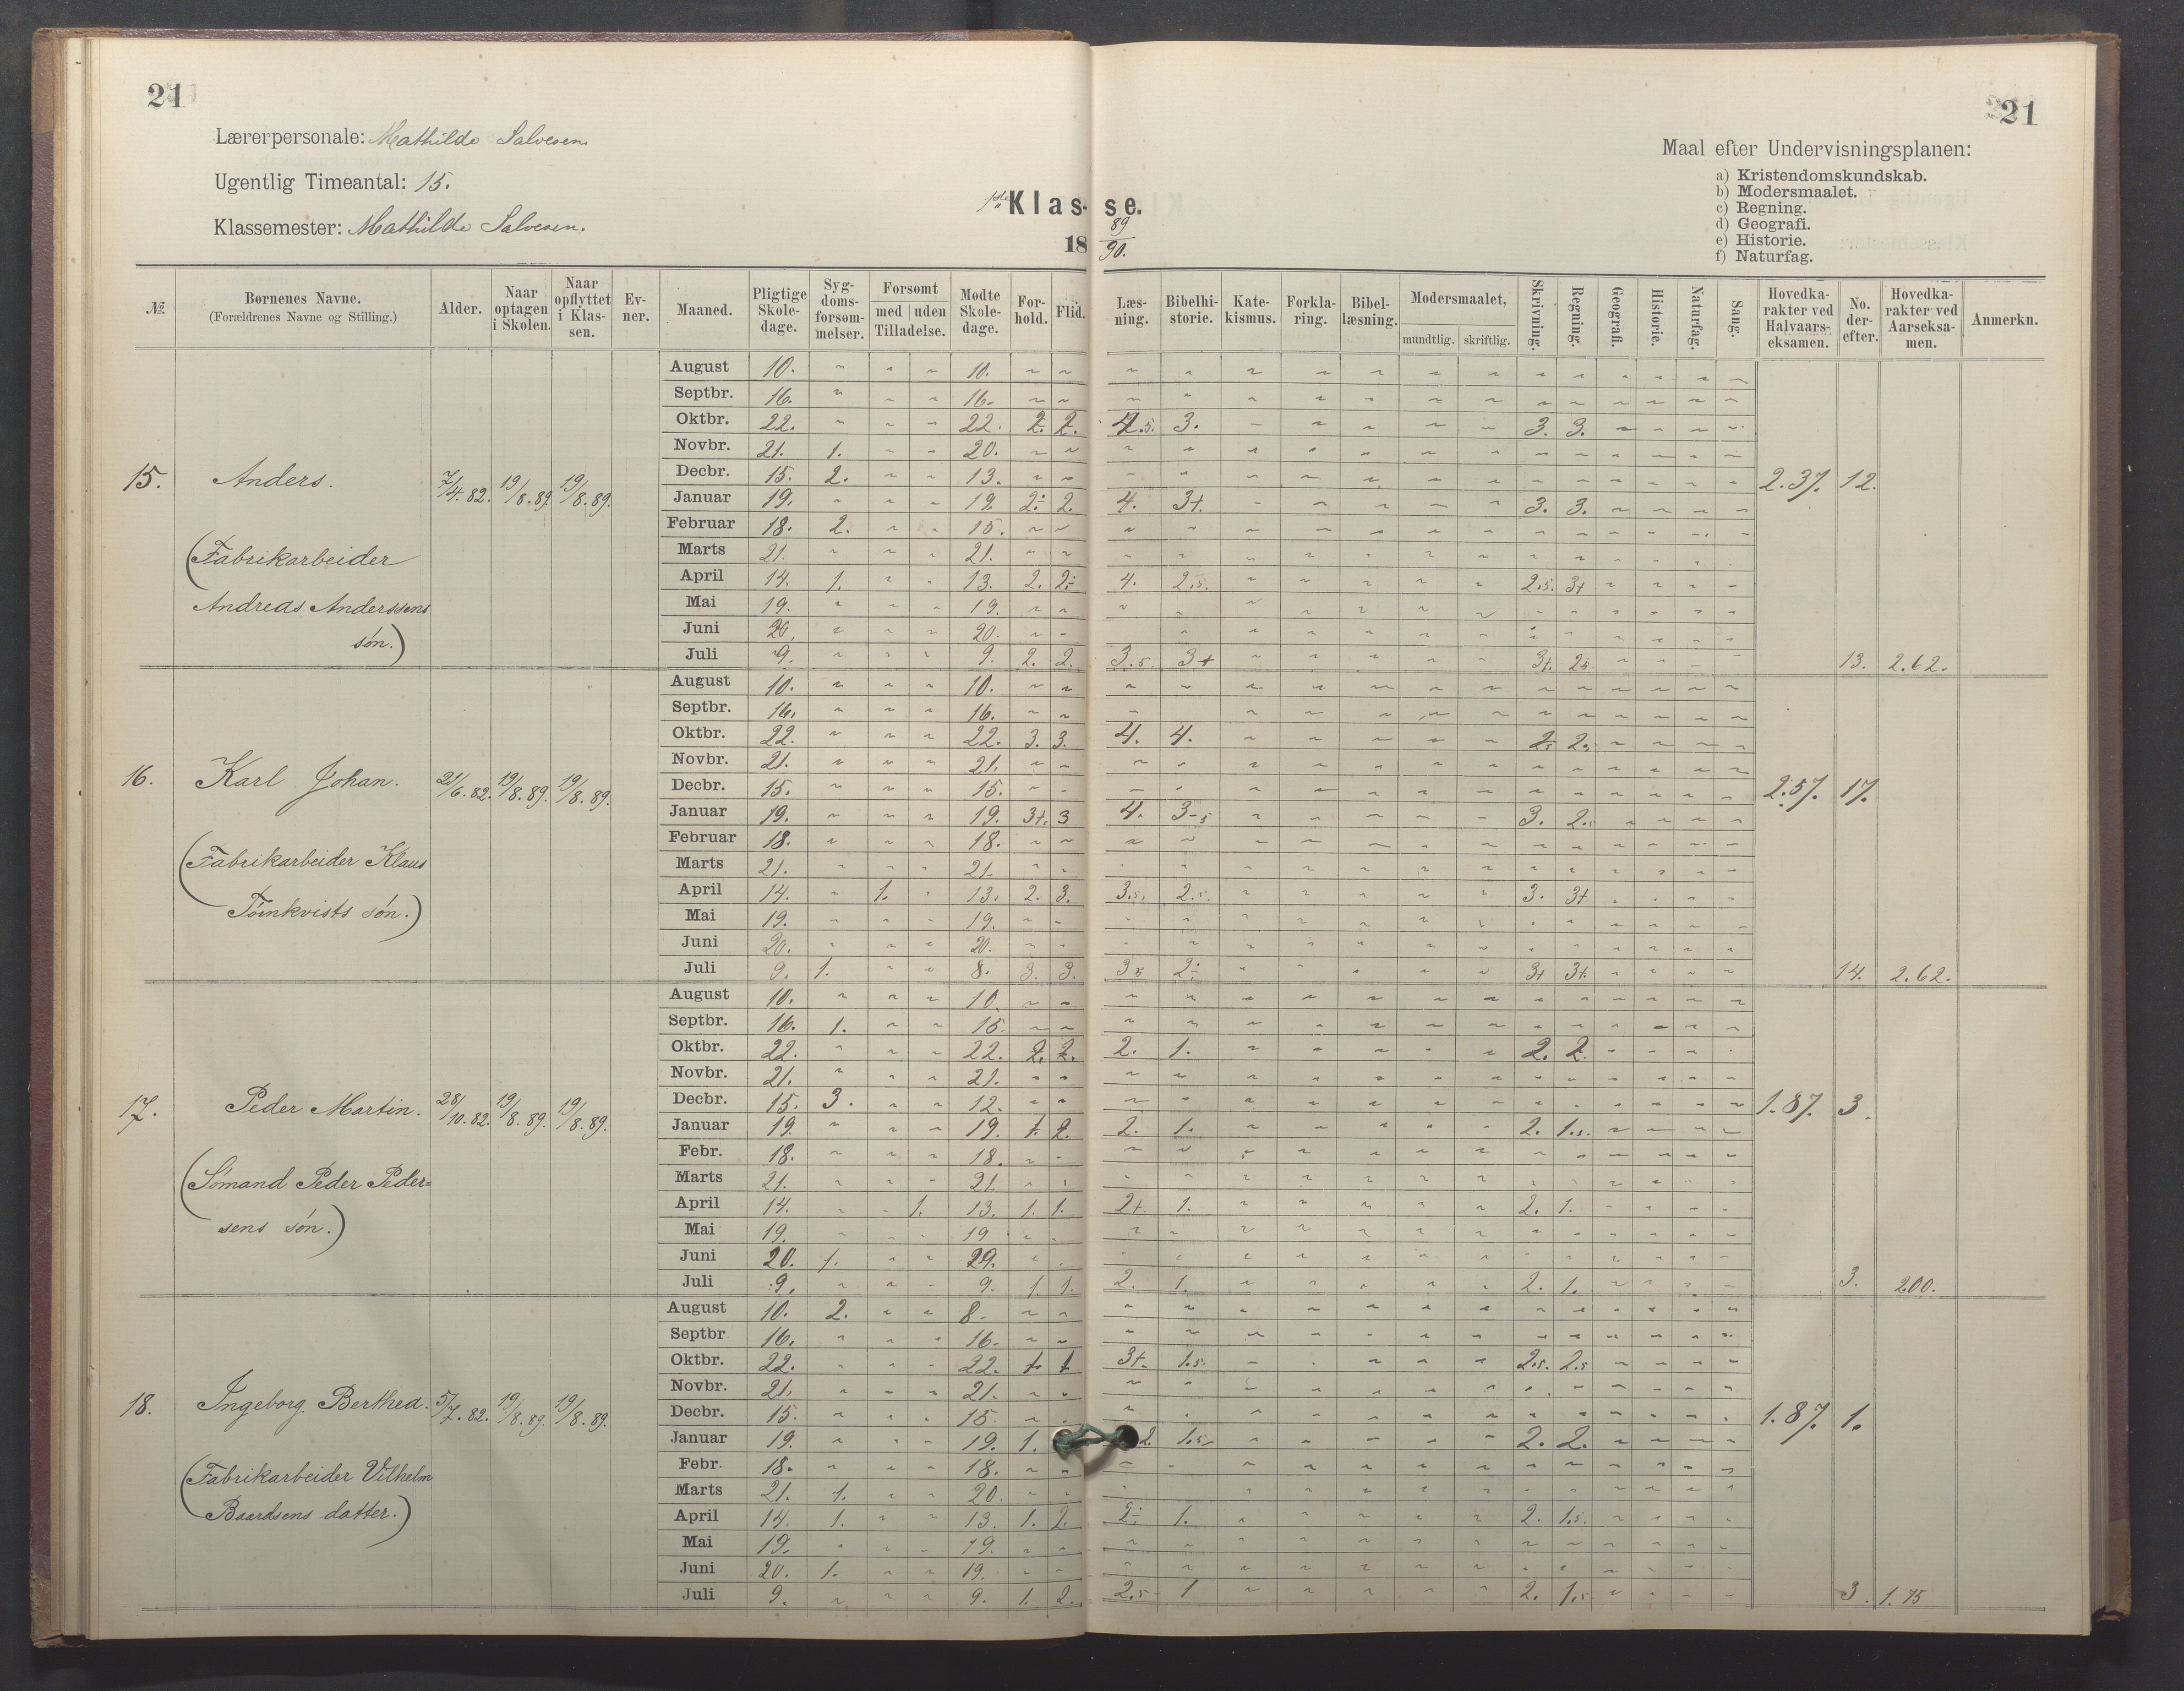 21
21
Lærerpersonale: Mathilde Salvesen
Ugentlig Timeantal: 15.
Klassemester: Mathilde Salvesen.
1ste Klasse.
18 89/90.
Maal efter Undervisningsplanen:
a) Kristendomskundskab.
b) Modersmaalet.
c) Regning.
d) Geografi.
e) Historie.
f) Naturfag.
№ Børnenes Navne. (Forældrenes Navne og Stilling.) Alder. Naar optagen i Skolen. Naar opflyttet i Klassen. Evner. Maaned. Pligtige Skoledage. Sygdomsforsømmelser. Forsømt med uden Tilladelse. Mødte Skoledage. Forhold. Flid. Læsning. Bibelhistorie. Katekismus. Forklaring. Bibellæsning. Modersmaalet, mundtlig. skriftlig. Skrivning. Regning. Geografi. Historie. Naturfag. Sang. Hovedkarakter ved Halvaarseksamen. No. derefter. Hovedkarakter ved Aarseksamen. Anmerkn.
15. Anders. 7/4.82. 19/8.89. 19/8.89. 2.37. 12.
(Fabrikarbeider
Andreas Anderssens
søn.)
August 10. 10.
Septbr. 16. 16.
Oktbr. 22. 22. 2. 2. 4.5. 3. 3. 3.
Novbr. 21. 1. 20.
Decbr. 15. 2. 13.
Januar 19. 19. 2÷ 2. 4. 3+. 3. 3.
Februar 18. 2. 15.
Marts 21. 21.
April 14. 1. 13. 2. 2÷ 4. 2.5. 2.5. 3+
Mai 19. 19.
Juni 20. 20.
Juli 9. 9. 2. 2. 3.5. 3+ 3+. 2.5 13. 2.62.
16. Karl Johan. 21/6.82. 19/8.89. 19/8.89. 2.57. 17.
(Fabrikarbeider Klaus
Törnkvists søn.)
August 10. 10.
Septbr. 16. 16.
Oktbr. 22. 22. 3. 3. 4. 4. 2.5 2.5
Novbr. 21. 21.
Decbr. 15. 15.
Januar 19. 19. 3+. 3 4. 3-5 3. 2.5
Februar 18. 18.
Marts 21. 21.
April 14. 1. 13. 2. 3. 3.5. 2.5. 3. 3+
Mai 19. 19.
Juni 20. 20.
Juli 9. 1. 8. 3. 3. 3.5 2÷ 3+ 3+. 14. 2.62.
17. Peder Martin. 28/10.82. 19/8.89. 19/8.89. 1.87. 3.
(Sömand Peder Peder=
sens søn.)
August 10. 10.
Septbr. 16. 1. 15.
Oktbr. 22. 22. 2. 2. 2. 1. 2. 2.
Novbr. 21. 21.
Decbr. 15. 3. 12.
Januar 19. 19. 1. 2. 2. 1. 2. 1.5.
Febr. 18. 18.
Marts 21. 21
April 14. 1. 13. 1. 1. 2+ 1. 2. 1.
Mai 19. 19
Juni 20. 1. 29.
Juli 9. 9. 1. 1. 2. 1. 2. 1. 3. 200.
18. Ingeborg Berthea. 5/7.82. 19/8.89. 19/8.89. 1.87. 1.
(Fabrikarbeider Vilhelm
Baardsens datter.)
August 10. 2. 8.
Septbr 16. 16.
Oktbr. 22. 22. 1. 1 3+. 1.5. 2.5. 2.5
Novbr. 21. 21.
Decbr. 15. 15.
Januar 19. 19. 1. 2. 1.5. 2. 2.
Febr. 18. 18.
Marts 21. 1. 20.
April 14. 1. 13. 1. 2. 2÷ 1. 2. 1.5.
Mai 19. 19.
Juni 20. 1. 19.
Juli 9. 9. 1. 2. 2.5 1 2. 1.5 3. 1.75